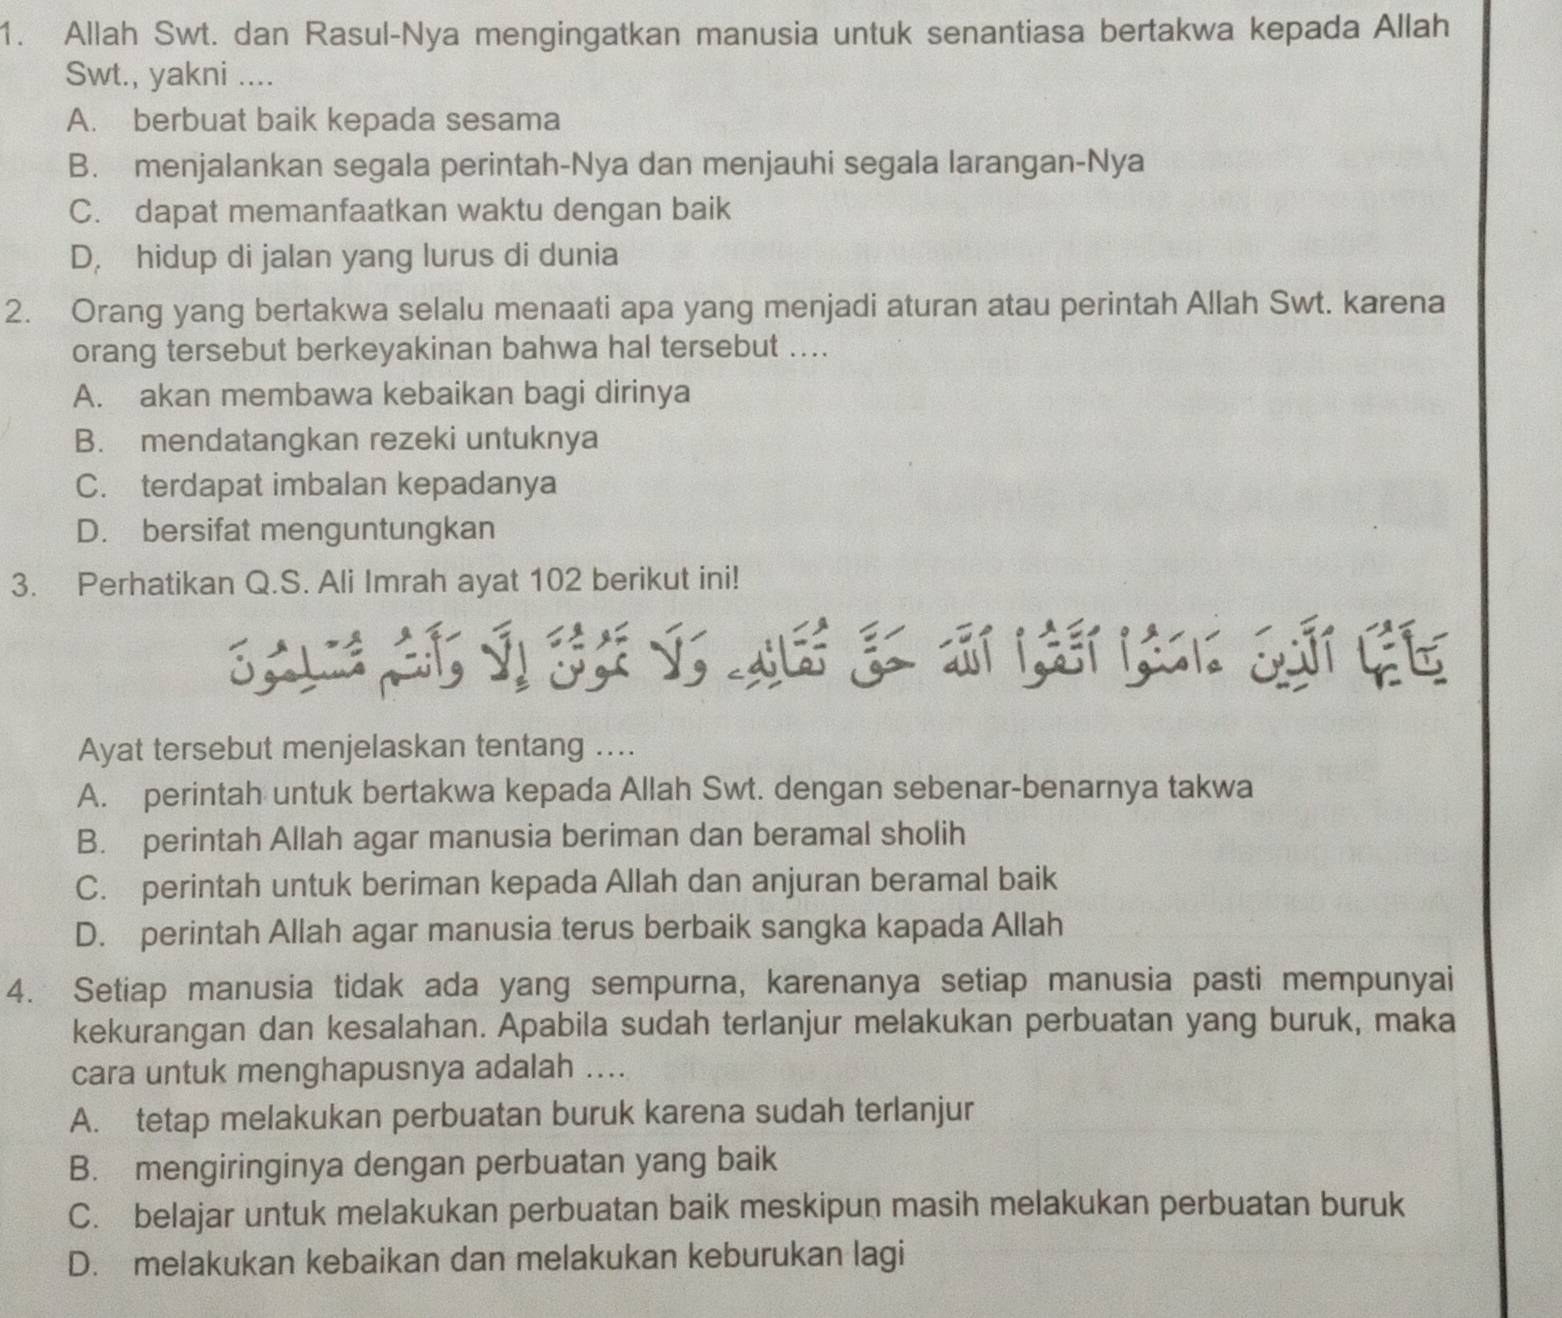 1. Allah Swt. dan Rasul-Nya mengingatkan manusia untuk senantiasa bertakwa kepada Allah
Swt., yakni ....
A. berbuat baik kepada sesama
B. menjalankan segala perintah-Nya dan menjauhi segala larangan-Nya
C. dapat memanfaatkan waktu dengan baik
D. hidup di jalan yang lurus di dunia
2. Orang yang bertakwa selalu menaati apa yang menjadi aturan atau perintah Allah Swt. karena
orang tersebut berkeyakinan bahwa hal tersebut ....
A. akan membawa kebaikan bagi dirinya
B. mendatangkan rezeki untuknya
C. terdapat imbalan kepadanya
D. bersifat menguntungkan
3. Perhatikan Q.S. Ali Imrah ayat 102 berikut ini!
يَـٰٓأَيُّهَا ٱلَّذِينَ ءَامَنُوا۟ ٱتَّقُوا۟ ٱللَّهَ حَقَّ تُقَاتِهِۦ وَلَا تَمُوتُنَّ إِلَّا وَأَنتُم مُّسْلِمُونَ
Ayat tersebut menjelaskan tentang ....
A. perintah untuk bertakwa kepada Allah Swt. dengan sebenar-benarnya takwa
B. perintah Allah agar manusia beriman dan beramal sholih
C. perintah untuk beriman kepada Allah dan anjuran beramal baik
D. perintah Allah agar manusia terus berbaik sangka kapada Allah
4. Setiap manusia tidak ada yang sempurna, karenanya setiap manusia pasti mempunyai
kekurangan dan kesalahan. Apabila sudah terlanjur melakukan perbuatan yang buruk, maka
cara untuk menghapusnya adalah ....
A. tetap melakukan perbuatan buruk karena sudah terlanjur
B. mengiringinya dengan perbuatan yang baik
C. belajar untuk melakukan perbuatan baik meskipun masih melakukan perbuatan buruk
D. melakukan kebaikan dan melakukan keburukan lagi